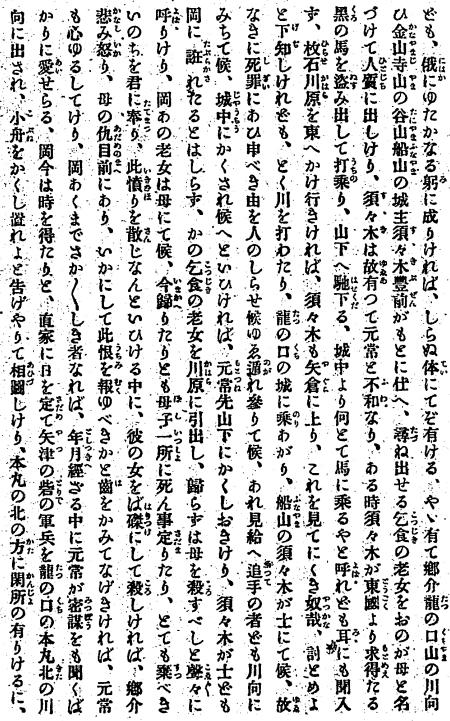 ども、俄にゆたかなる躬に成りければ、しらぬ体にてぞ有ける、やゝ有て郷介龍の口山の川向
ひ金山寺山の谷山船山の城主須々木豊前がもとに仕へ、尋ね出せる乞食の老女をおのが母と名
づけて人質に出しけり、須々木は故有つて元常と不和なり、ある時須々木が東國より求得たる
黒の馬を盗み出して打乗り、山下へ馳下る、城中より何とて馬に乗るやと呼れども耳にも聞入
ず、枚石川原を東へかけ行きければ、須々木も矢倉に上り、これを見てにくき奴哉、討とめよ
と下知しけれども、とく川を打わたり、龍の口の城に乗あがり、船山の須々木が士にて候、故
なきに死罪にあひ申べき由を人のしらせ候ゆゑ遁れ参りて候、あれ見給へ追手の者ども川向に
みちて候、城中にかくされ候へといひければ、元常先山下にかくしおきけり、須々木が士ども
岡に誑れたるとはしらず、かの乞食の老女を川原に引出し、歸らずは母を殺すべしと聲々に
呼りけり、岡あの老女は母にて候、今歸りたりとも母子一所に死ん事定りたり、とても棄べき
いのちを君に奉り、此憤りを散じなんといひける中に、彼の女をば磔にして殺しければ、郷介
悲み怒り、母の仇目前にあり、いかにして此恨を報ゆべきかと齒をかみてなげきければ、元常
も心ゆるしてけり、岡あくまでさか〳〵しき者なれば、年月經ざる中に元常が密謀をも聞くば
かりに愛せらる、岡今は時を得たりと、直家に日を定て矢津の砦の軍兵を龍の口の本丸北の川
向に出され、小舟をかくし置れよと告げやりて相圖しけり、本丸の北の方に閑所の有りけるに、